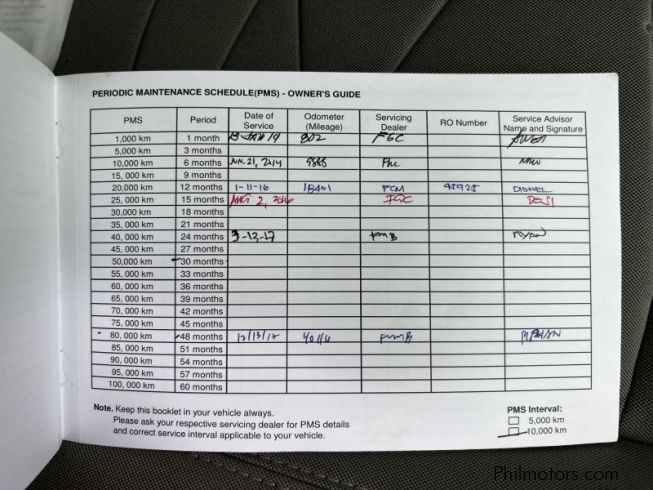 PERIODIC MAINTENANCE SCHEDULE(PMS) - OWNER'S GUIDE
PMS Period Date of Service Odometer (Mileage) Servicing Dealer RO Number Service Advisor Name and Signature
1,000 km 1 month 802 FGC
5,000 km 3 months
10,000 km 6 months
15, 000 km 9 months
20,000 km 12 months 1-11-16 FCM
25, 000 km 15 months AUG 2, 2016 FGC
30,000 km 18 months
35, 000 km 21 months
40, 000 km 24 months 3-13-17 FMB RYAN
45, 000 km 27 months
50,000 km 30 months
55, 000 km 33 months
60, 000 km 36 months
65, 000 km 39 months
70, 000 km 42 months
75, 000 km 45 months
80, 000 km 48 months 12/13/17 40116 FMB
85, 000 km 51 months
90, 000 km 54 months
95, 000 km 57 months
100, 000 km 60 months
Note. Keep this booklet in your vehicle always.
Please ask your respective servicing dealer for PMS details
and correct service interval applicable to your vehicle.
PMS Interval:
5,000 km
10,000 km
Philmotors.com